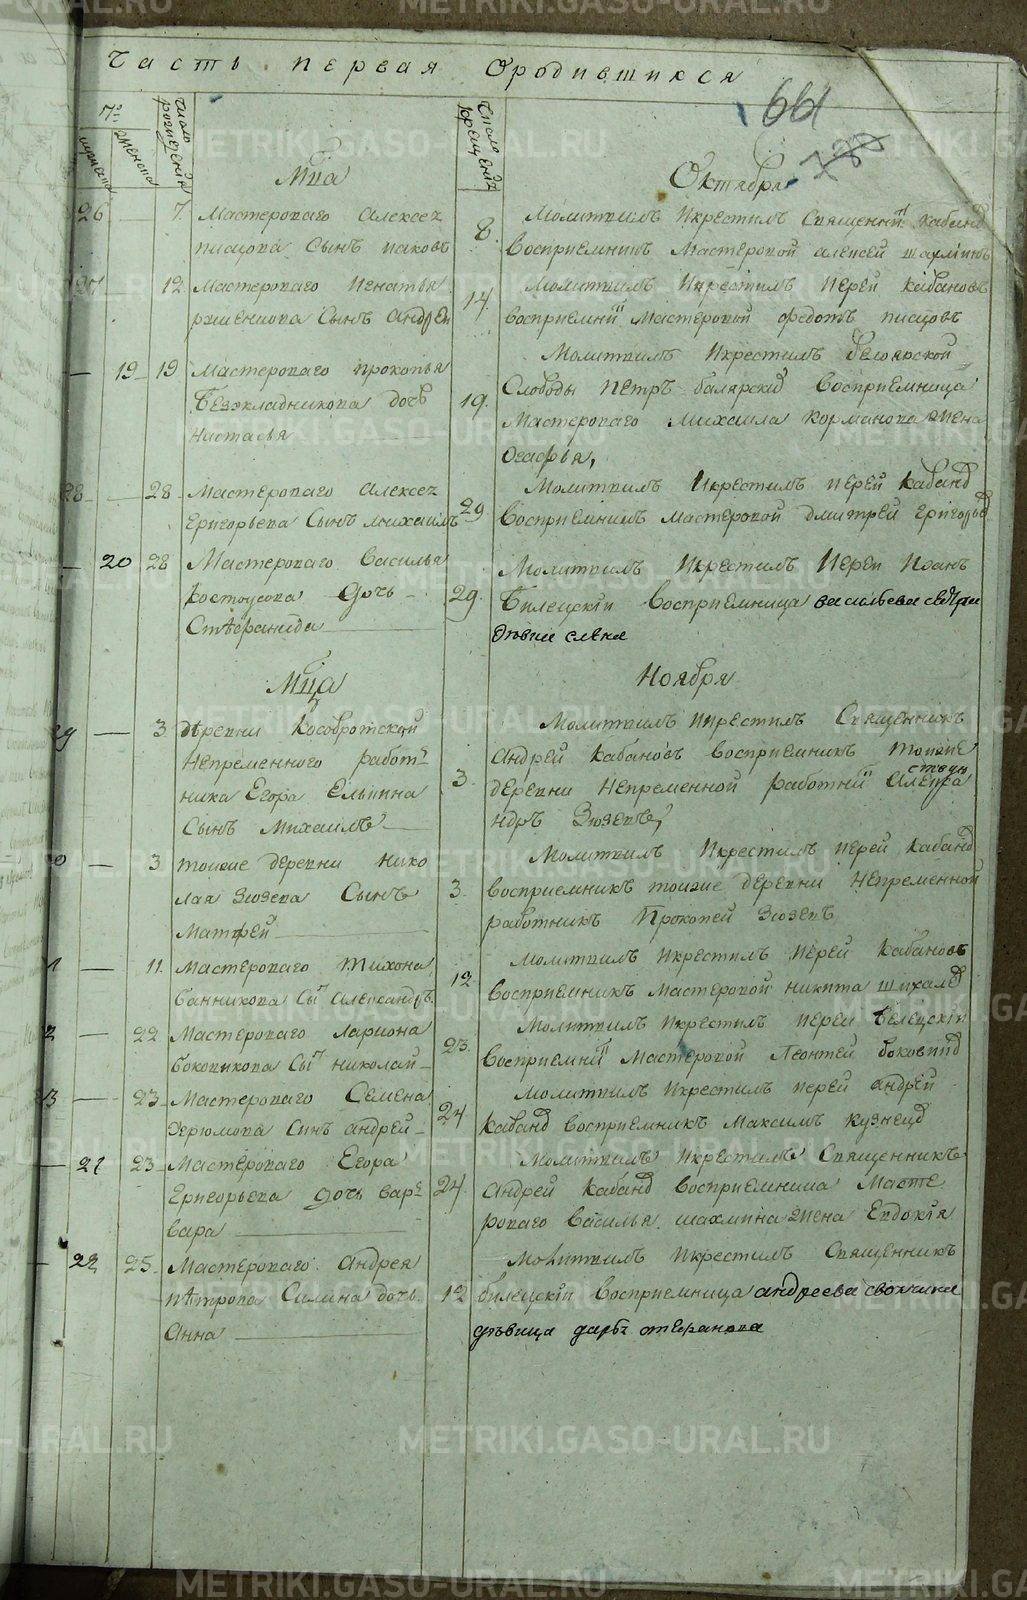 METRIKI.GASO-URAL.RU
Часть первая Ородившихся
661
№
число рождения
число крещения
мужеска
женска
Мца Октября
26 — 7. Мастероваго Алексеz
писцова Сынъ иаковъ
8. Молитвилъ Икрестилъ Священни Кабанв
Восприемникъ Мастеровой алексей
27 — 12 Мастероваго Игнатья
Сынъ Андрей
14 Молитвилъ Икрестилъ Иерей Кабановъ
восприемни Мастеровой Федотъ писцовъ
— 19 19 Мастероваго Прокопья
Безокладникова дочь
Настасья
19. Молитвилъ Икрестилъ Белоярской
Слободы Петръ Восприемница
Мастероваго Михаила Корманова жена
Огафья,
28 — 28 Мастероваго Алексеz
Григорьева Сынъ михаилъ
29 Молитвилъ Икрестилъ иерей Кабанв
восприемникъ мастеровой дмитрей григорьв
— 20 28 Мастероваго Василья
Костоусова Дочь
Стефанида
29. Молитвилъ Икрестилъ Иерей Иоанъ
Билецкій Восприемница васильева
Мца Ноября
29 — 3 Деревни Кособротской
Непременного работ
ника Егора Елькина
Сынъ Михаилъ
3. Молитвилъ икрестилъ Священникъ
Андрей Кабановъ восприемникъ тоиже
деревни Непременной работни Алекса
ндръ Зюзевъ,
30 — 3 тоиже деревни Нико
лая Зюзева Сынъ
Матфей
3. Молитвилъ Икрестилъ иерей Кабанв
восприемникъ тоиже деревни Непременной
работникъ Прокопей Зюзевъ
31 — 11. Мастероваго Тихона
банникова Сы Александръ.
12 Молитвилъ Икрестилъ Иерей Кабановъ
восприемникъ Мастеровой никита шихалв
32 — 22 Мастероваго Лариона
боковикова Сы николай
23. Молитвилъ Икрестилъ иерей Белецкій
Восприемни Мастеровой Леонтей боковикв
33 — 23 Мастероваго Семена
Херюмова Синъ андрей
24 Молитвилъ Икрестилъ иерей андрей
Кабанв восприемникъ Максимъ кузнецв
— 21 23 Мастероваго Егора
Григорьева дочь вар
вара
24 Молитвилъ Икрестилъ Священникъ
Андрей Кабанв Восприемница Масте
роваго Василья шахмина жена Евдокія
— 22 25 Мастероваго Андрея
Петрова Силина дочь
Анна
12 Молитвилъ Икрестилъ Священникъ
билецкій Восприемница андреева своячина
девица дарья